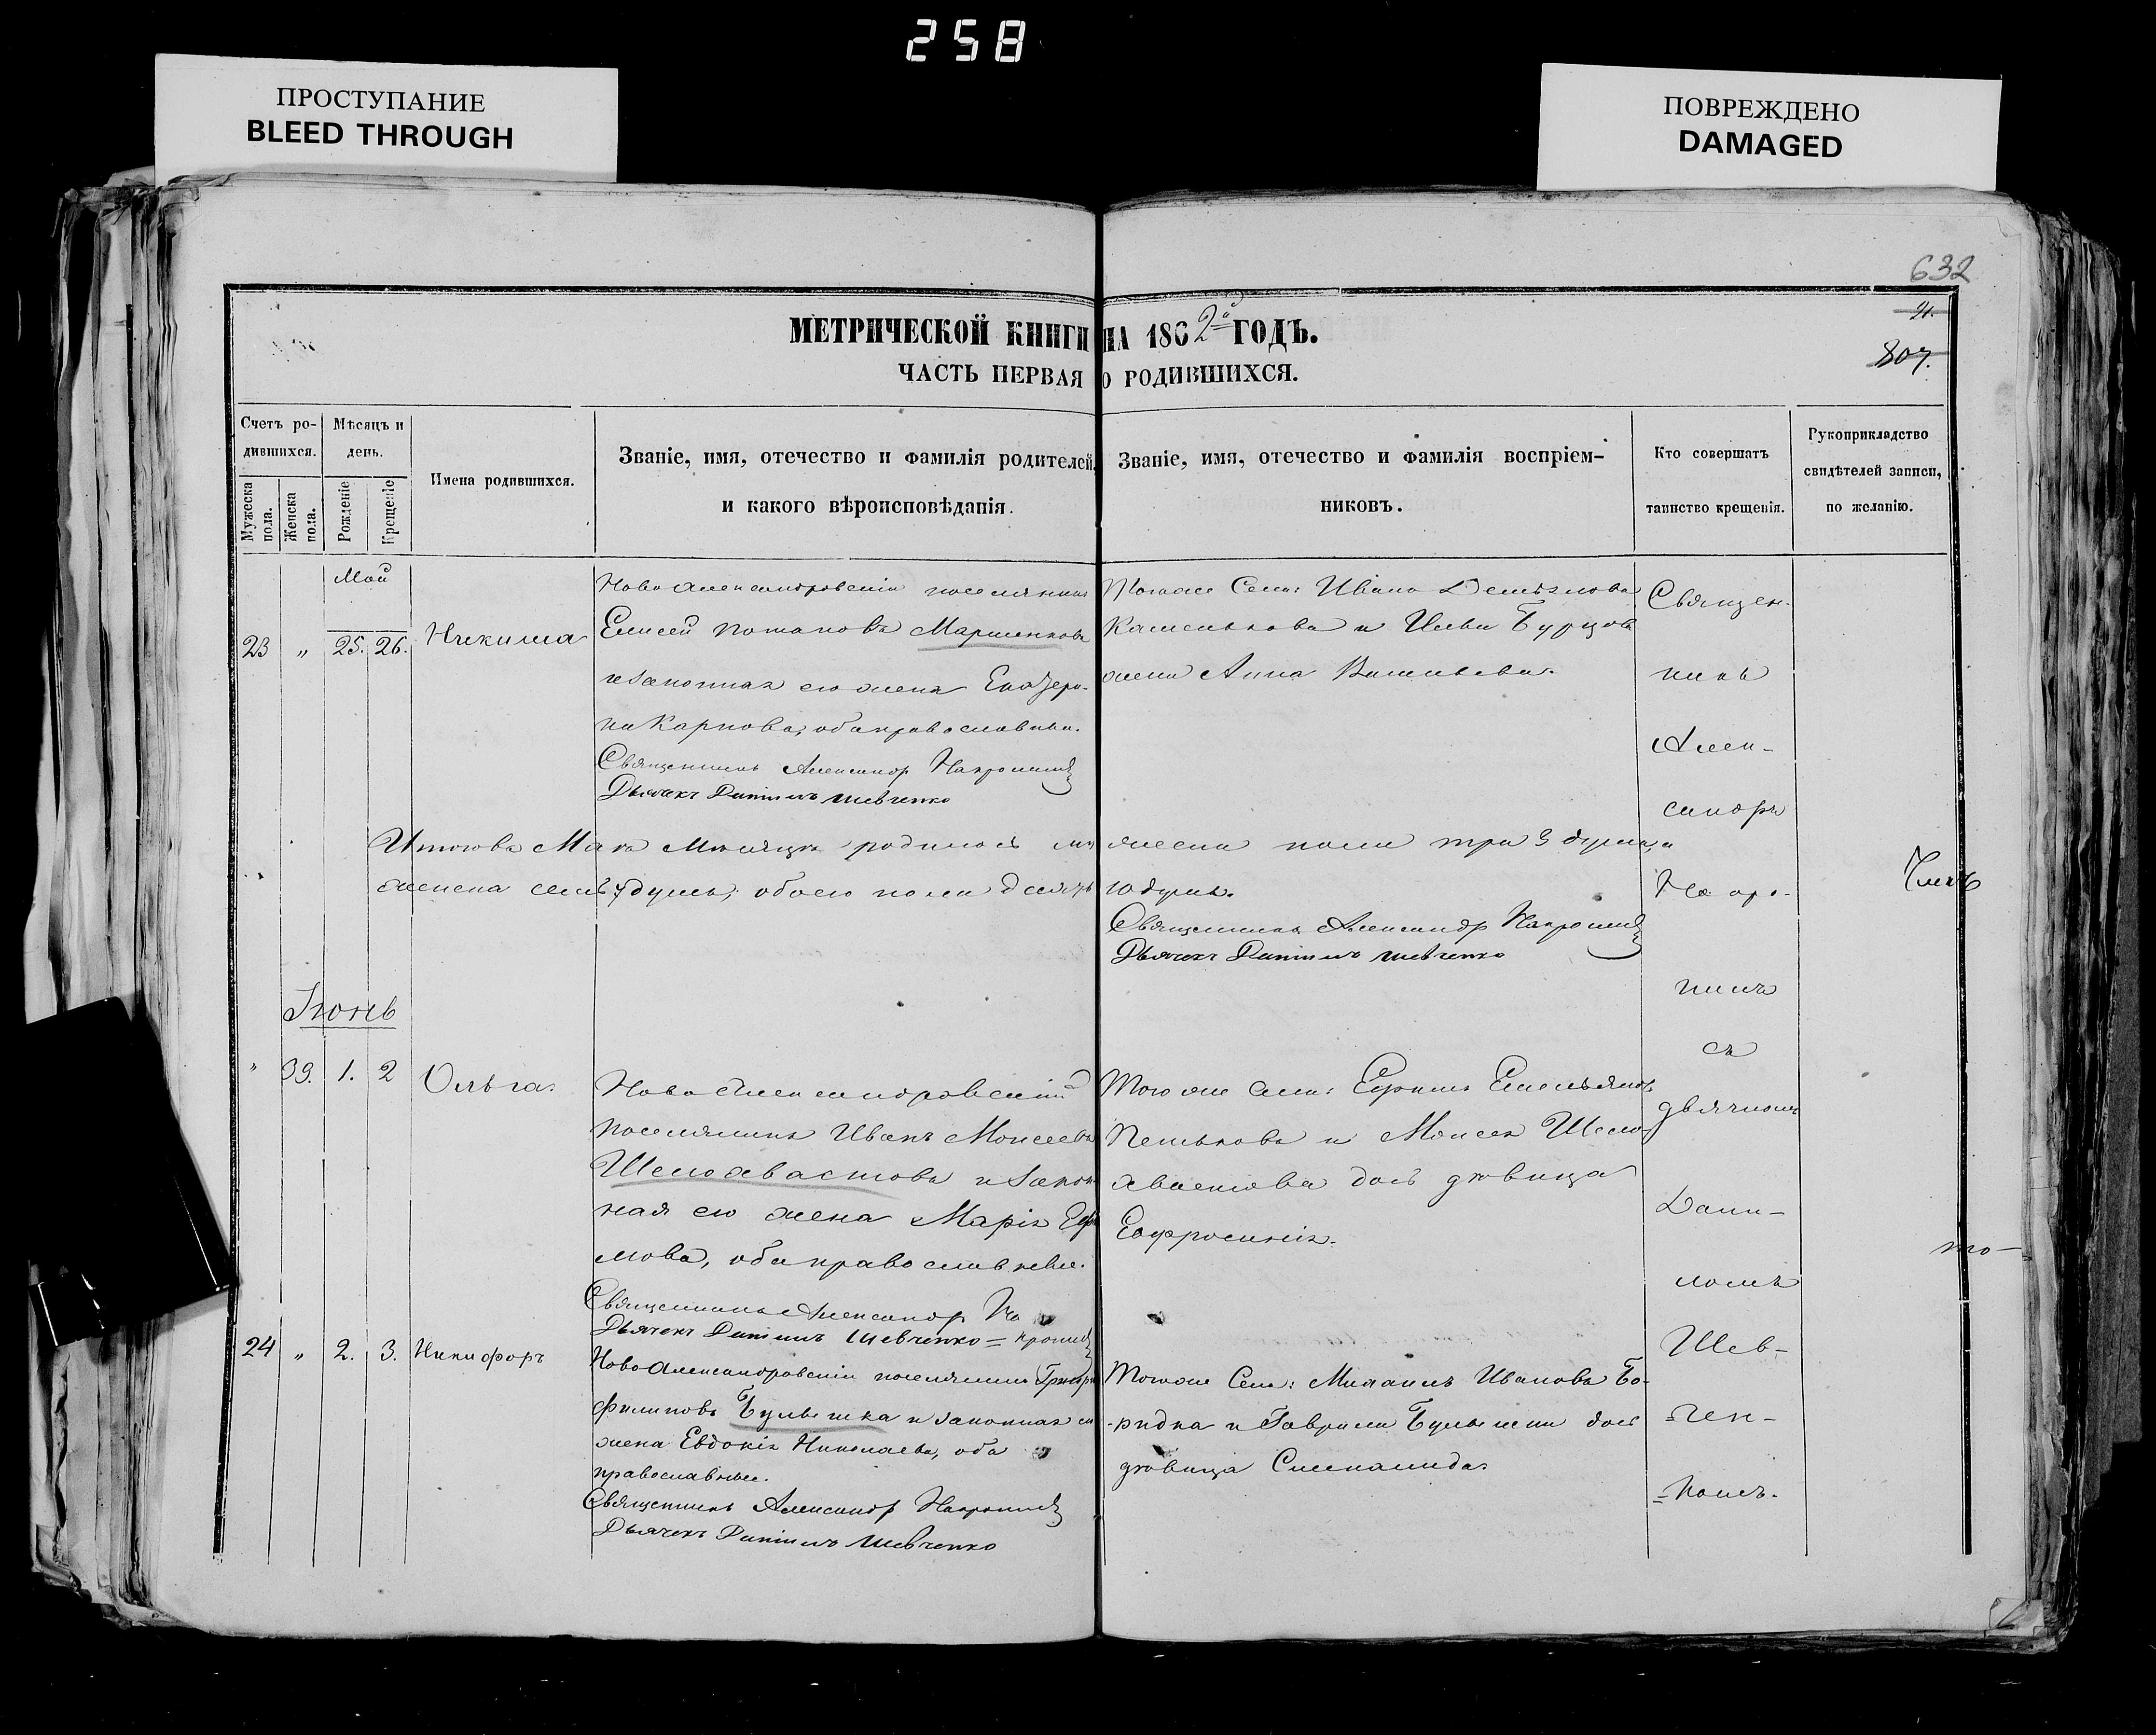 258
ПРОСТУПАНИЕ
BLEED THROUGH
ПОВРЕЖДЕНО
DAMAGED
632
807.
МЕТРИЧЕСКОЙ КНИГИ НА 1862й ГОДЪ.
ЧАСТЬ ПЕРВАЯ О РОДИВШИХСЯ.
Счетъ ро-
дившихся.
Мужеска пола.
Женска пола.
Мѣсяцъ и
день.
Рожденіе
Крещеніе
Имена родившихся.
Званіе, имя, отечество и фамилія родителей,
и какого вѣроисповѣданія.
Званіе, имя, отечество и фамилія воспріем-
никовъ.
Кто совершатъ
таинство крещенія.
Рукоприкладство
свидѣтелей записи,
по желанію.
Май
23 " 25. 26. Никита
Новоалександровскій поселянинъ
Елисей Потаповъ Мартенковъ
и законная его жена Екатери-
на Карпова, оба православные.
Священникъ Александр
Дьячекъ Даніилъ Шевченко
Тогоже Села: Иванъ
и Ильи Бурцова
жена Анна Васильева.
Итого въ Маѣ Мѣсяцѣ родилось мужеска пола три 3 души, а
женска семь 7 душъ, обоего пола десять 10 душъ.
Священникъ Александр
Дьячекъ Даніилъ Шевченко
Іюнь
" 39. 1. 2 Ольга.
Новоалександровскій
поселянинъ Иванъ Моисеевъ
Шелохвастовъ и закон-
ная его жена Марія Ефи
мова, оба православные.
Священникъ Александр
Дьячекъ Даніилъ Шевченко
Того же села: Ефимъ Емельяновъ
Петьковъ и Моисея Шело
хвастова дочь дѣвица
Евфросинія.
24 " 2. 3. Никифоръ
Новоалександровскій поселянинъ Григорій
Филиповъ Булышка и законная его
жена Евдокія Николаева, оба
православные.
Священникъ Александр
Дьячекъ Даніилъ Шевченко
Тогоже Села: Михаилъ Ивановъ Бо-
-ридка и Гаврила дочь
дѣвица
Священ-
никъ
Алек-
сандръ
съ
дьячкомъ
Дани-
ломъ
Шев-
=чен-
=комъ.